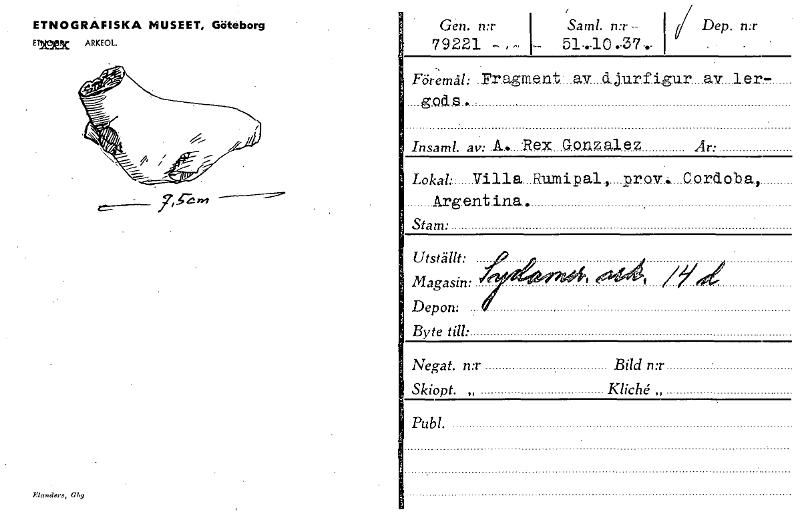 ETNOGRAFISKA MUSEET, Göteborg
ARKEOL.
7,5cm
Elanders, Gbg
Gen. n:r Saml. n:r Dep. n:r
79221 51.10.37.
Föremål: Fragment av djurfigur av ler-
gods.
Insaml. av: A. Rex Gonzalez År:
Lokal: Villa Rumipal, prov. Cordoba,
Argentina.
Stam:
Utställt:
Magasin: Sydamer. ark. 14 d
Depon:
Byte till:
Negat. n:r Bild n:r
Skiopt. „ Kliché „
Publ.